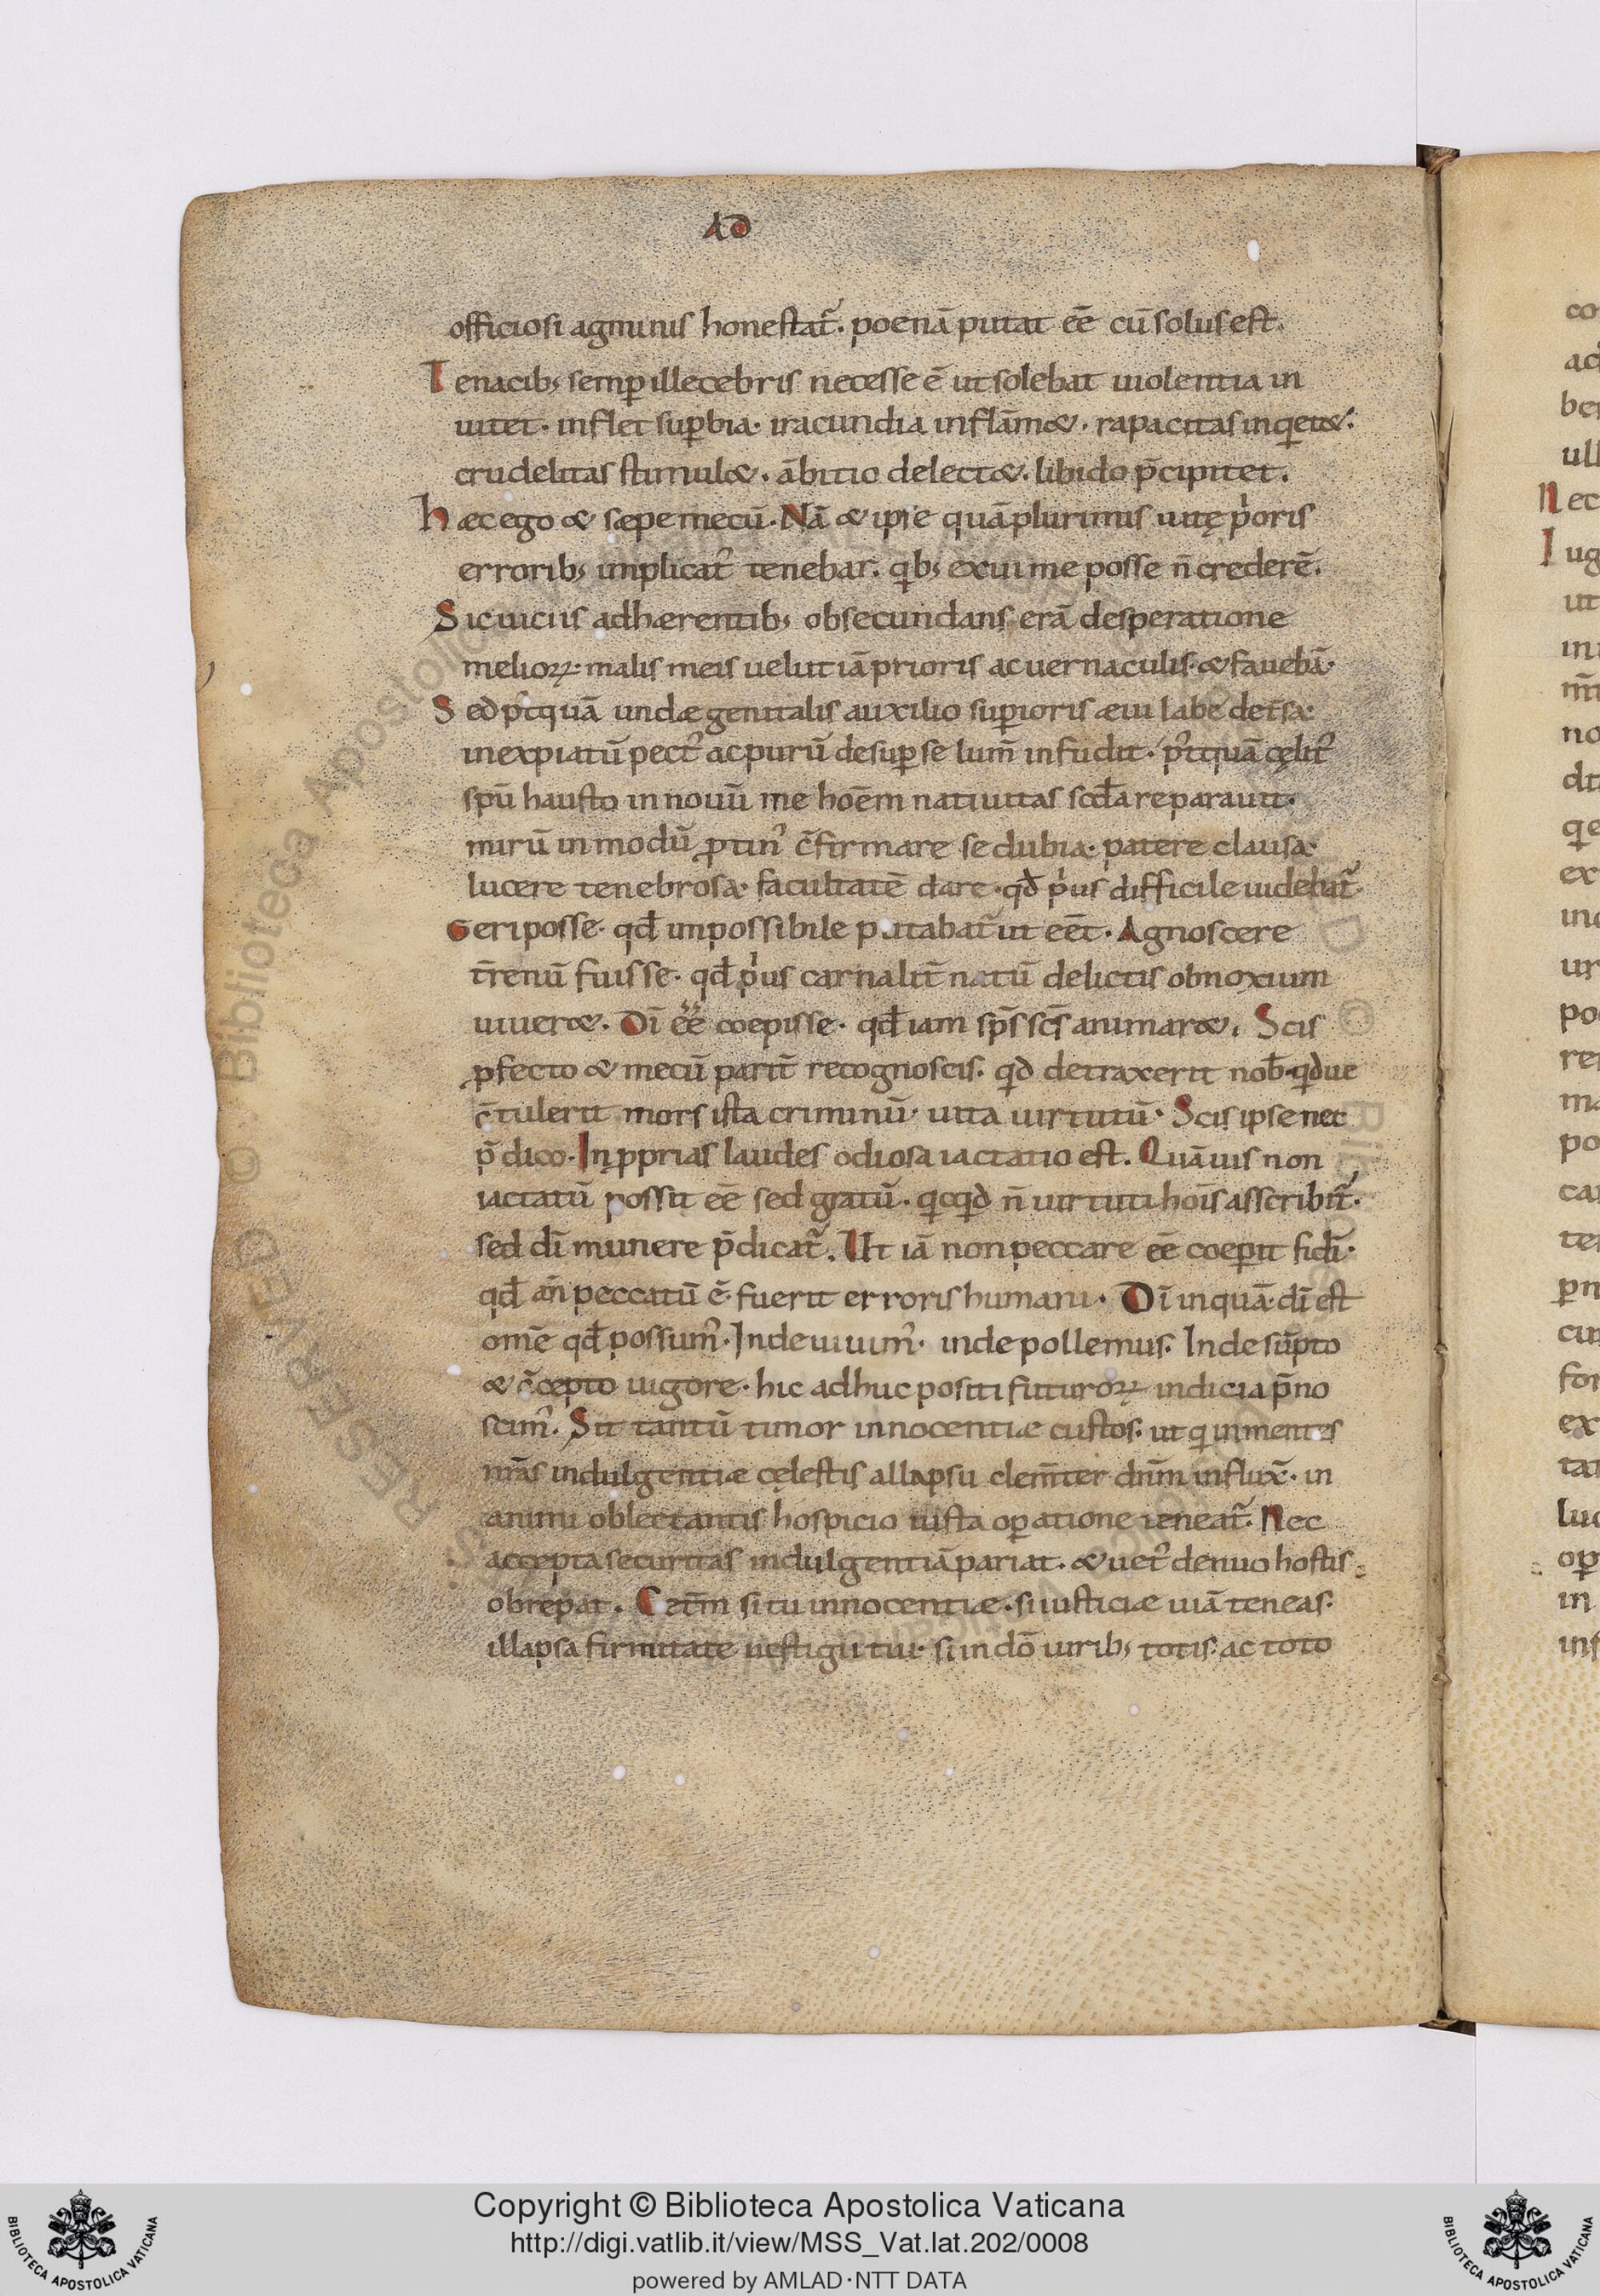 AD
officiosi agminis honestat᷑· poenā putat eē cū solus est.
Tenacib; semp illecebris necesse ē ut solebat uiolentia in
uitet· inflet supbia· iracundia inflām&· rapacitas inqet&·
crudelitas stimul&· ābitio delect&· libido p̄cipitet.
Hæc ego & sæpe mecū· Nā & ipse quā plurimis uitę p'oris
errorib; implicat᷑ tenebar· qb; exui me posse n̄ crederē.
Sic uiciis adhærentib; obsecundans erā desperatione
meliorꝝ· malis meis uelut iā prioris ac uernaculis· & fauebā·
Sed ptquā undæ genitalis auxilio supioris æui labe det̄sa·
inexpiatū pect᷑ ac purū desup se lum̄ infudit· p᷑tquā cęlit᷑
spū hausto in nouū me hoēm natiuitas scda reparauit·
mirū in modū ꝓtin᷑ c̄firmare se dubia· patere clausa·
lucere tenebrosa· facultatē dare· qđ p'us difficile uidebat᷑·
Geri posse· qđ impossibile putabat᷑ ut eēt· Agnoscere
t̄renū fuisse· qđ p'us carnalit̄ natū delictis obnoxium
uiuer&· Dī eē coepisse· qđ iam sps̄ scs̄ animar&· Scis
ꝓfecto & mecū parit̄ recognoscis· qd detraxerit nob· qdue
c̄tulerit mors ista criminū· uita uirtutū· Scis ipse nec
p̄dico· In ꝓprias laudes odiosa iactatio est. Quāuis non
iactatū possit eē sed gratū· qcqd n̄ uirtuti hoīs asscribit᷑·
sed dī munere p̄dicat᷑. Ut iā non peccare eē coepit fidī·
qđ an̄ peccatū ē· fuerit erroris humani· Dī inquā· dī est
omē qđ possum᷑· Inde uiuim᷑· inde pollemus. Inde sūpto
& c̄cepto uigore· hic adhuc positi futurorꝝ indicia p̄no
scim᷑. Sit tantū timor innocentiæ custos· ut q in mentes
nr̄as indulgentiæ cęlestis allapsu clem̄ter dnm̄ influx̄· in
animi oblectantis hospicio iusta opatione teneat᷑. Nec
accepta securitas indulgentiā pariat· & uet᷑ denuo hostis
obrepat. Cet̄m si tu innocentiæ· si iusticiæ uiā teneas·
illapsa firmitate uestigii tui· si in dō uirib; totis ac toto
Copyright © Biblioteca Apostolica Vaticana
http://digi.vatlib.it/view/MSS_Vat.lat.202/0008
powered by AMLAD·NTT DATA
BIBLIOTECA APOSTOLICA VATICANA
BIBLIOTECA APOSTOLICA VATICANA